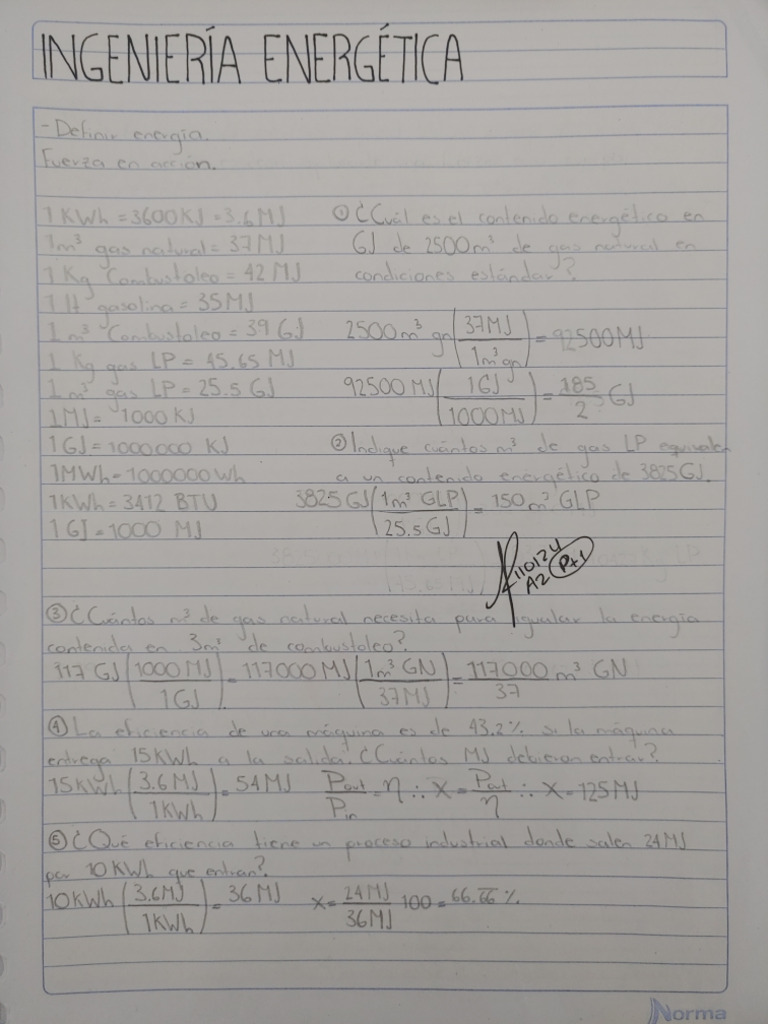 INGENIERÍA ENERGÉTICA
- Definir energía.
Fuerza en acción.
1 KWh = 3600KJ = 3.6 MJ
1m³ gas natural = 37 MJ
1 Kg Combustoleo = 42 MJ
1 lt gasolina = 35 MJ
1 m³ Combustoleo = 39 GJ
1 Kg gas LP = 45.65 MJ
1 m³ gas LP = 25.5 GJ
1MJ = 1000 KJ
1 GJ = 1000000 KJ
1MWh = 1000000 Wh
1KWh = 3412 BTU
1 GJ = 1000 MJ
① ¿Cuál es el contenido energético en
GJ de 2500m³ de gas natural en
condiciones estándar?
2500m³ gn (37MJ / 1m³ gn) = 92500MJ
92500 MJ (1GJ / 1000MJ) = 185/2 GJ
② Indique cuántos m³ de gas LP equivalen
a un contenido energético de 3825GJ.
3825 GJ (1m³ GLP / 25.5 GJ) = 150m³ GLP
110124
A2 P+1
③ ¿Cuántos m³ de gas natural necesita para igualar la energía
contenida en 3m³ de combustoleo?
117 GJ (1000 MJ / 1GJ) = 117000 MJ (1m³ GN / 37MJ) = 117000/37 m³ GN
④ La eficiencia de una máquina es de 43.2% si la máquina
entrega 15KWh a la salida. ¿Cuántos MJ debieron entrar?
15KWh (3.6 MJ / 1KWh) = 54MJ Pout/Pin = η ∴ X = Pout/η ∴ X = 125MJ
⑤ ¿Qué eficiencia tiene un proceso industrial donde salen 24MJ
por 10KWh que entran?
10KWh (3.6MJ / 1KWh) = 36MJ x = 24MJ/36MJ 100 = 66.66%
Norma